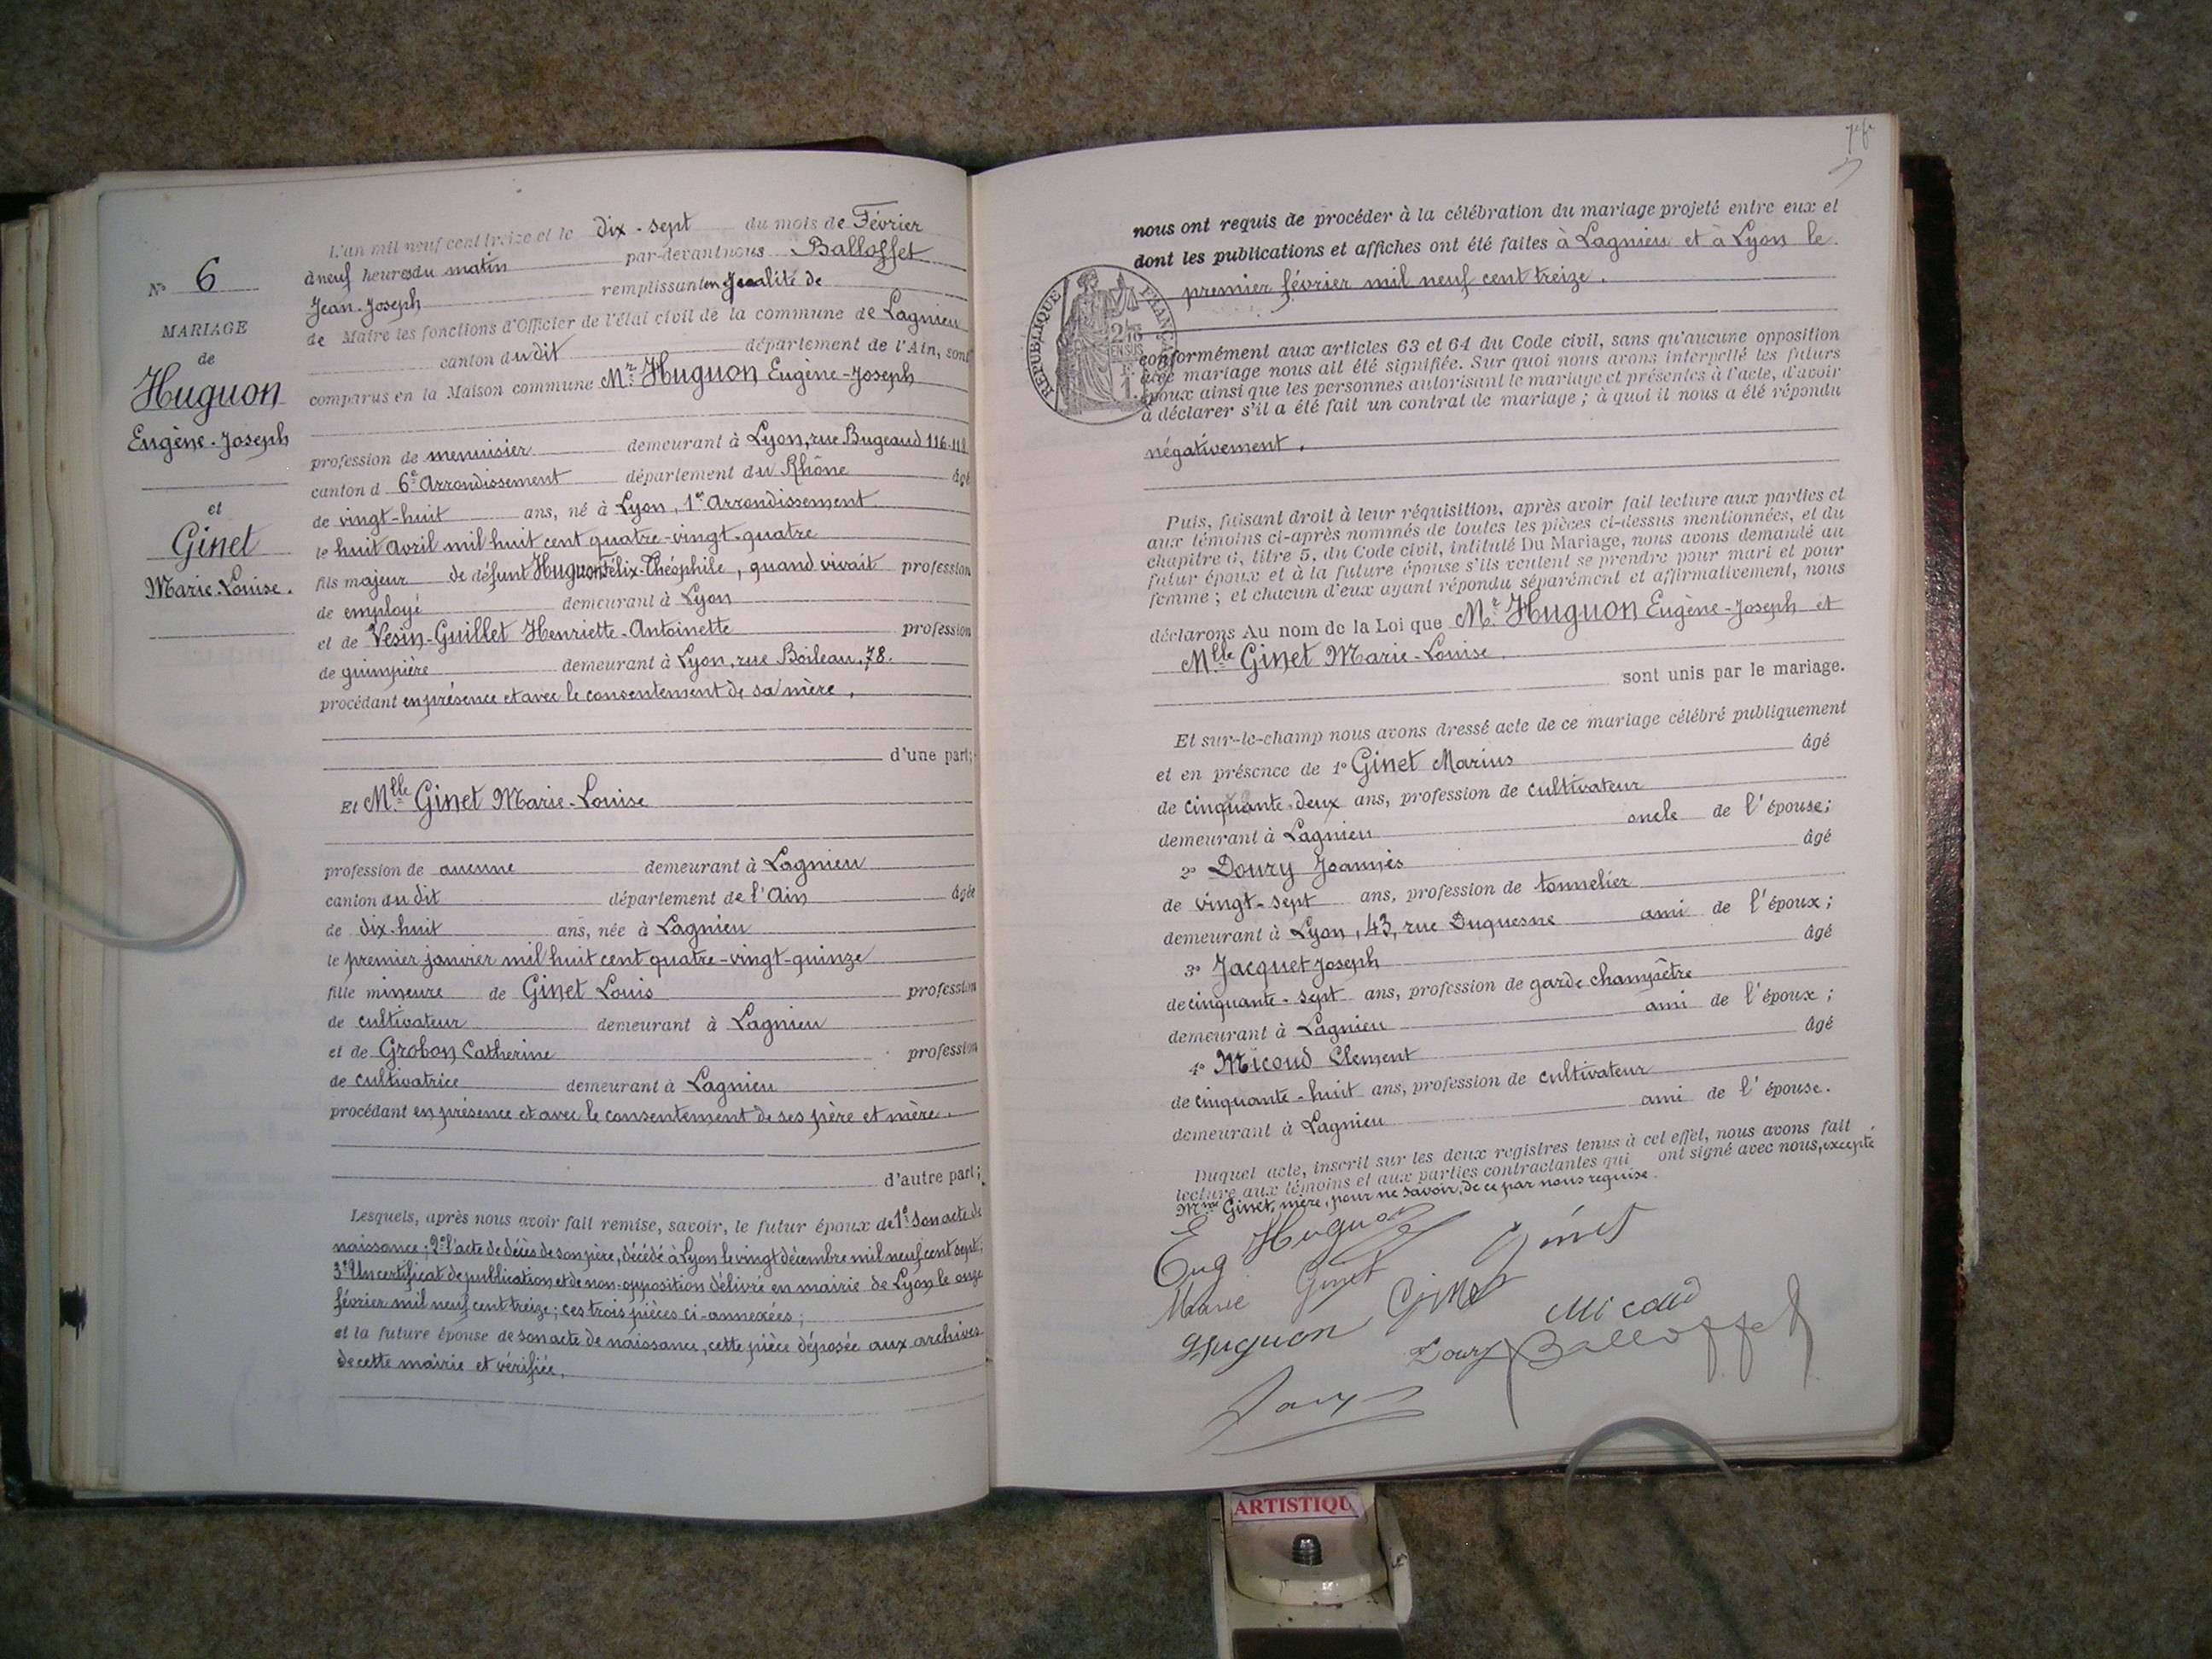 N° 6
MARIAGE
de
Huguon
Eugène-Joseph
et
Ginet
Marie-Louise.
L'an mil neuf cent treize et le dix-sept du mois de Février
à neuf heures du matin par-devant nous Balloffet
Jean-Joseph remplissant en qualité de
de Maire les fonctions d'Officier de l'état civil de la commune de Lagnieu
canton dudit département de l'Ain, sont
comparus en la Maison commune Mr Huguon Eugène-Joseph
profession de menuisier demeurant à Lyon, rue Bugeaud 116-118
canton d 6e Arrondissement département du Rhône âgé
de vingt-huit ans, né à Lyon, 1er Arrondissement
le huit avril mil huit cent quatre-vingt-quatre
fils majeur de défunt Huguon Félix-Théophile, quand vivait profession
de employé demeurant à Lyon
et de Vesin-Guillet Henriette-Antoinette profession
de guimpière demeurant à Lyon, rue Boileau, 78.
procédant en présence et avec le consentement de sa mère,
d'une part;
Et Mlle Ginet Marie-Louise
profession de aucune demeurant à Lagnieu
canton dudit département de l'Ain âgée
de dix-huit ans, née à Lagnieu
le premier janvier mil huit cent quatre-vingt-quinze
fille mineure de Ginet Louis profession
de cultivateur demeurant à Lagnieu
et de Grobon Catherine profession
de cultivatrice demeurant à Lagnieu
procédant en présence et avec le consentement de ses père et mère.
d'autre part;
Lesquels, après nous avoir fait remise, savoir, le futur époux de 1° son acte de
naissance; 2° l'acte de décès de son père, décédé à Lyon le vingt décembre mil neuf cent sept;
3° Un certificat de publication et de non-opposition délivré en mairie de Lyon le onze
février mil neuf cent treize; ces trois pièces ci-annexées;
et la future épouse de son acte de naissance, cette pièce déposée aux archives
de cette mairie et vérifiée,
nous ont requis de procéder à la célébration du mariage projeté entre eux et
dont les publications et affiches ont été faites à Lagnieu et à Lyon le
premier février mil neuf cent treize.
RÉPUBLIQUE FRANÇAISE
conformément aux articles 63 et 64 du Code civil, sans qu'aucune opposition
audit mariage nous ait été signifiée. Sur quoi nous avons interpellé les futurs
époux ainsi que les personnes autorisant le mariage et présentes à l'acte, d'avoir
à déclarer s'il a été fait un contrat de mariage; à quoi il nous a été répondu
négativement.
Puis, faisant droit à leur réquisition, après avoir fait lecture aux parties et
aux témoins ci-après nommés de toutes les pièces ci-dessus mentionnées, et du
chapitre 6, titre 5, du Code civil, intitulé Du Mariage, nous avons demandé au
futur époux et à la future épouse s'ils veulent se prendre pour mari et pour
femme; et chacun d'eux ayant répondu séparément et affirmativement, nous
déclarons Au nom de la Loi que Mr Huguon Eugène-Joseph et
Mlle Ginet Marie-Louise
sont unis par le mariage.
Et sur-le-champ nous avons dressé acte de ce mariage célébré publiquement
et en présence de 1° Ginet Marius âgé
de cinquante-deux ans, profession de cultivateur
demeurant à Lagnieu oncle de l'épouse;
2° Doury Joannès âgé
de vingt-sept ans, profession de tonnelier
demeurant à Lyon, 43, rue Duquesne ami de l'époux;
3° Jacquet Joseph âgé
de cinquante-sept ans, profession de garde champêtre
demeurant à Lagnieu ami de l'époux;
4° Micoud Clement âgé
de cinquante-huit ans, profession de cultivateur
demeurant à Lagnieu ami de l'épouse.
Duquel acte, inscrit sur les deux registres tenus à cet effet, nous avons fait
lecture aux témoins et aux parties contractantes qui ont signé avec nous, excepté
Mme Ginet, mère, pour ne savoir, de ce par nous requise.
Eug Huguon Ginet
Marie Ginet Ginet Micoud
Huguon Doury Balloffet
ARTISTIQU